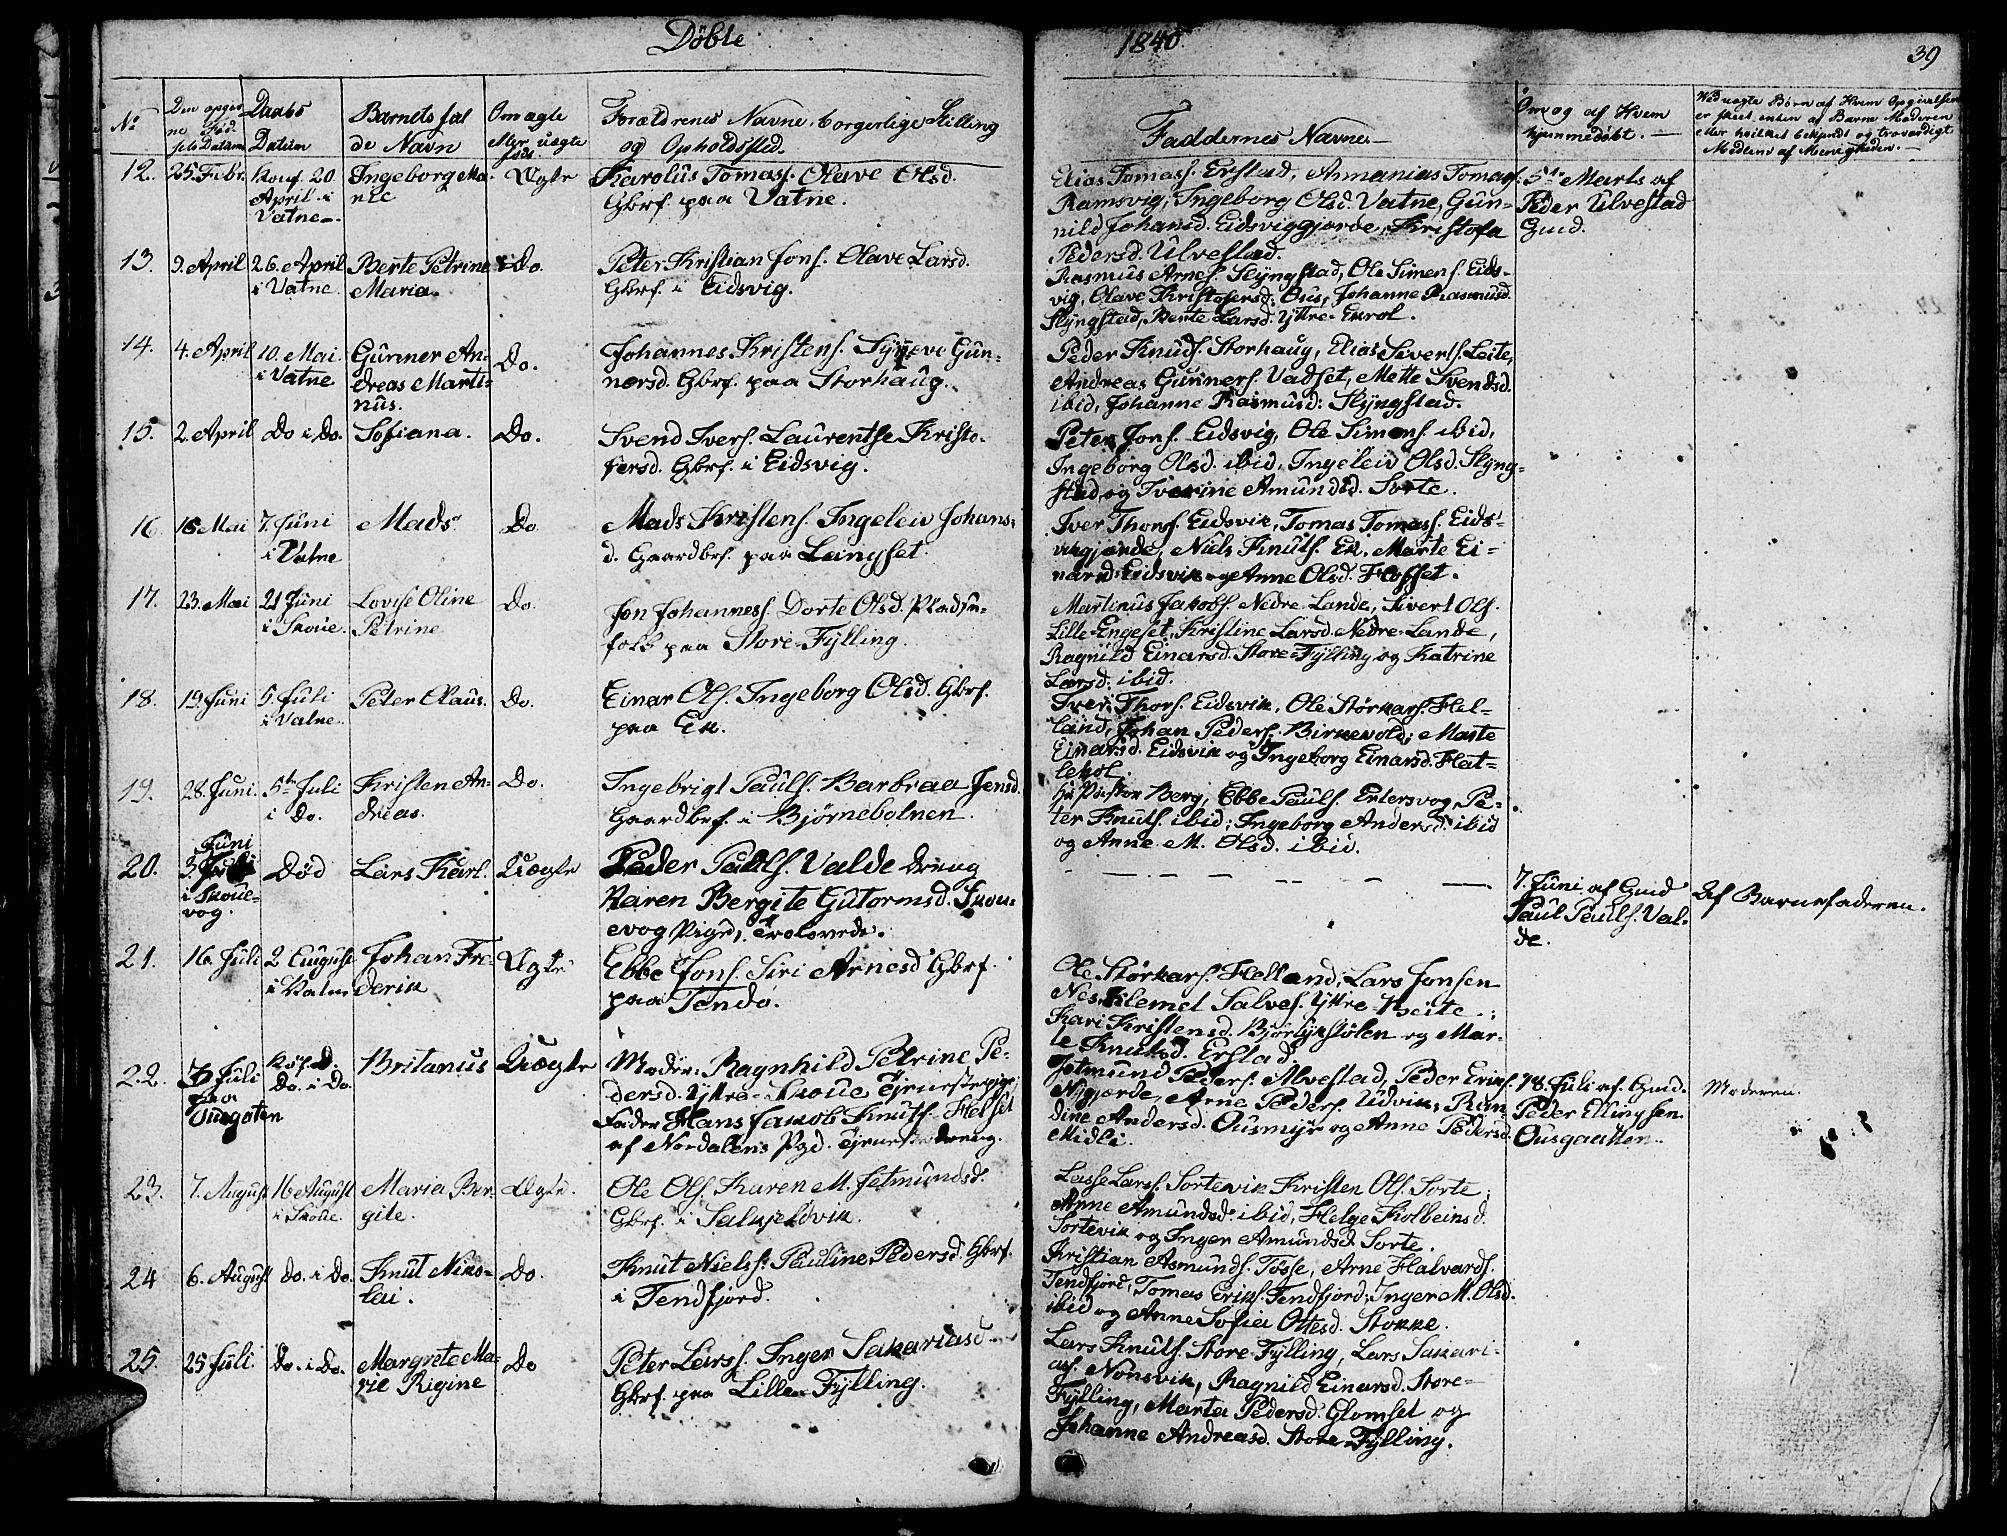 Döbte
1840
39
No
Den opgiv
ne Föd
sels Datum
Daabs
Datum
Barnets ful
de Navn
Om ægte
eller uægte
föds.
Forældrenes Navne, borgerlige Stilling
og Opholdssted.
Faddernes Navne.
Om og af Hvem
hjemmedöbt.
Ved uægte Börn af Hvem Opgivelsen
er skeet enten af Barne Moderen
eller hvilket bekjendt og troværdigt
Medlem af Menigheden.
12. 25. Febr. Konf. 20 April i Vatne. Ingeborg Ma-
nie
Ægte
Karolus Tomass. Olave Olsd.
Gbrf. paa Vatne.
Elias Tomass. Erstad, Annanias Tomass.
Ramsvig, Ingeborg Olsd. Vatne, Gun-
nild Johansd. Eidsviggjærde, Kristofa
Pedersd. Ulvestad.
5te Marts af
Peder Ulvestad
Gmd.
13. 9. April 26. April
i Vatne.
Berte Petrine
Maria.
Do.
Peter Kristian Jons. Olave Larsd.
Gbrf. i Eidsvig.
Rasmus Arnes. Slyngstad, Ole Simens. Eids-
vig, Olave Kristofersd. Ous, Johanne Rasmusd.
Slyngstad, Berte Larsd. Yttre-
14. 4. April 10. Mai
i Vatne
Gunner An-
dreas Marti-
nus.
Do.
Johannes Kristens. Synneve Gun-
nersd. Gbrf. paa Storhaug.
Peder Knuds. Storhaug, Elias Severts. Leite,
Andreas Gunners. Vadset, Mette Svendsd.
ibid, Johanne Rasmusd: Slyngstad.
15. 2. April Do i Do. Sofiana. Do.
Svend Ivers. Laurentse Kristo-
fersd. Gbrf. i Eidsvig.
Peter Jons. Eidsvig, Ole Simens. ibid,
Ingeborg Olsd. ibid, Ingeleiv Olsd. Slyng-
stad, og Iverine Amundsd. Sorte.
16. 16 Mai 7. Juni
i Vatne
Mads
Do
Mads Kristens. Ingeleiv Johans-
d. Gaardbrf. paa Langset.
Iver Thors. Eidsvik, Tomas Tomass. Eids-
vikgjærde, Niels Knuts. Ek. Marte Ei-
narsd. Eidsvik og Anne Olsd.
17. 23. Mai 21 Juni
i Skoue.
Lovise Oline
Petrine
Do.
Jon Johanness. Dorte Olsd. Pladsu-
folk paa Store-Fylling.
Martinus Jakobs. Nedre-Lande, Sivert Ols.
Lille-Engeset, Kristine Larsd. Nedre-Lande,
Ragnild Einarsd. Store-Fylling og Katrine
Larsd. ibid.
18. 19. Juni 5. Juli
i Vatne.
Peter Olaus. Do.
Einar Ols. Ingeborg Olsd. Gbrf.
paa Ek.
Iver Thors. Eidsvik, Ole Störkars. Hel-
land, Johan Peders. Birkevold; Marte
Einarsd. Eidsvik og Ingeborg Einarsd. Flat-
lehol.
19. 28. Juni. 5te Juli
i Do.
Kristen An-
dreas.
Do.
Ingebrigt Pauls. Barbraa Jensd.
Gaardbrf. i Björnebotnen.
Hr Pastor Berg, Ebbe Pauls. Erlersvog, Pe-
ter Knuts. ibid; Ingeborg Andersd. ibid
og Anne M. Olsd. ibid.
20. Juni
3.
i Skoue-
vog.
Död Lars Karl. Uægte
Fader Pauls. Valde dreng
Karen Bergite Gutormsd. Skou-
evog Pige,
7. Juni af Gmd
Paul Pauls. Val-
de.
Af Barnefaderen.
21. 16 Juli 2 August
i Vatne
Johan Fre-
derik
Ægte
Ebbe Jons. Siri Arnesd Gbrf.
paa Tendö.
Ole Störkars. Helland; Lars Jonsen
Nes, Klemet Salves. Yttre-Leite;
Kari Kristensd. Björlykstölen og Mar-
te Knutsd. Erstad.
22. 7. Juli
paa
Ousgaten
Konf. D.
Do. i Do.
Britanus Uægte
Moder: Ragnhild Petrine Pe-
dersd. Yttre-Skoue Tjenestepige;
Fader Hans Jakob Knuts. Helset
af Nordalens Pgd. Tjenestedreng.
Jetmund Peders. Alvestad, Peder Eriks.
Nygjerde, Arne Peders. Udvik; Ran-
dine Andersd. Ousmyr og Anne Pedersd.
Midli.
18. Juli af Gmd.
Peder Ellingsen
Ousgaatten.
Moderen.
23. 7. August 16 August
i Skoue.
Maria Ber-
gite.
Ægte.
Ole Ols. Karen M. Jetmundsd.
Gbrf. i Salkjelsvik.
Lasse Larss. Sortevik Kristen Ols. Sorte;
Anne Amundsd. ibid, Helge Kolbeinsd.
Sortevik og Inger Amundsd. Sorte.
24 6. August Do. i Do. Knut Niko-
lai.
Do.
Knut Nielss. Pauline Pedersd. Gbrf.
i Tendfjord.
Kristian Asmunds. Tösse, Arne Halvards.
Tendfjord, Tomas Eriks. Tendfjord; Inger M. Olsd.
ibid og Anne Sofia Ottesd. Stokke.
25. 25 Juli. Do. i Do. Margrete Ma-
rie Rigine
Do
Peter Larss. Inger Sakariasd.
Gbrf. paa Lille-Fylling.
Lars Knuts. Store-Fylling, Lars Sakari-
as. Nonsvik, Ragnild Einarsd. Store-
Fylling, Marta Pedersd. Glomset og
Johanne Andreasd. Store-Fylling.